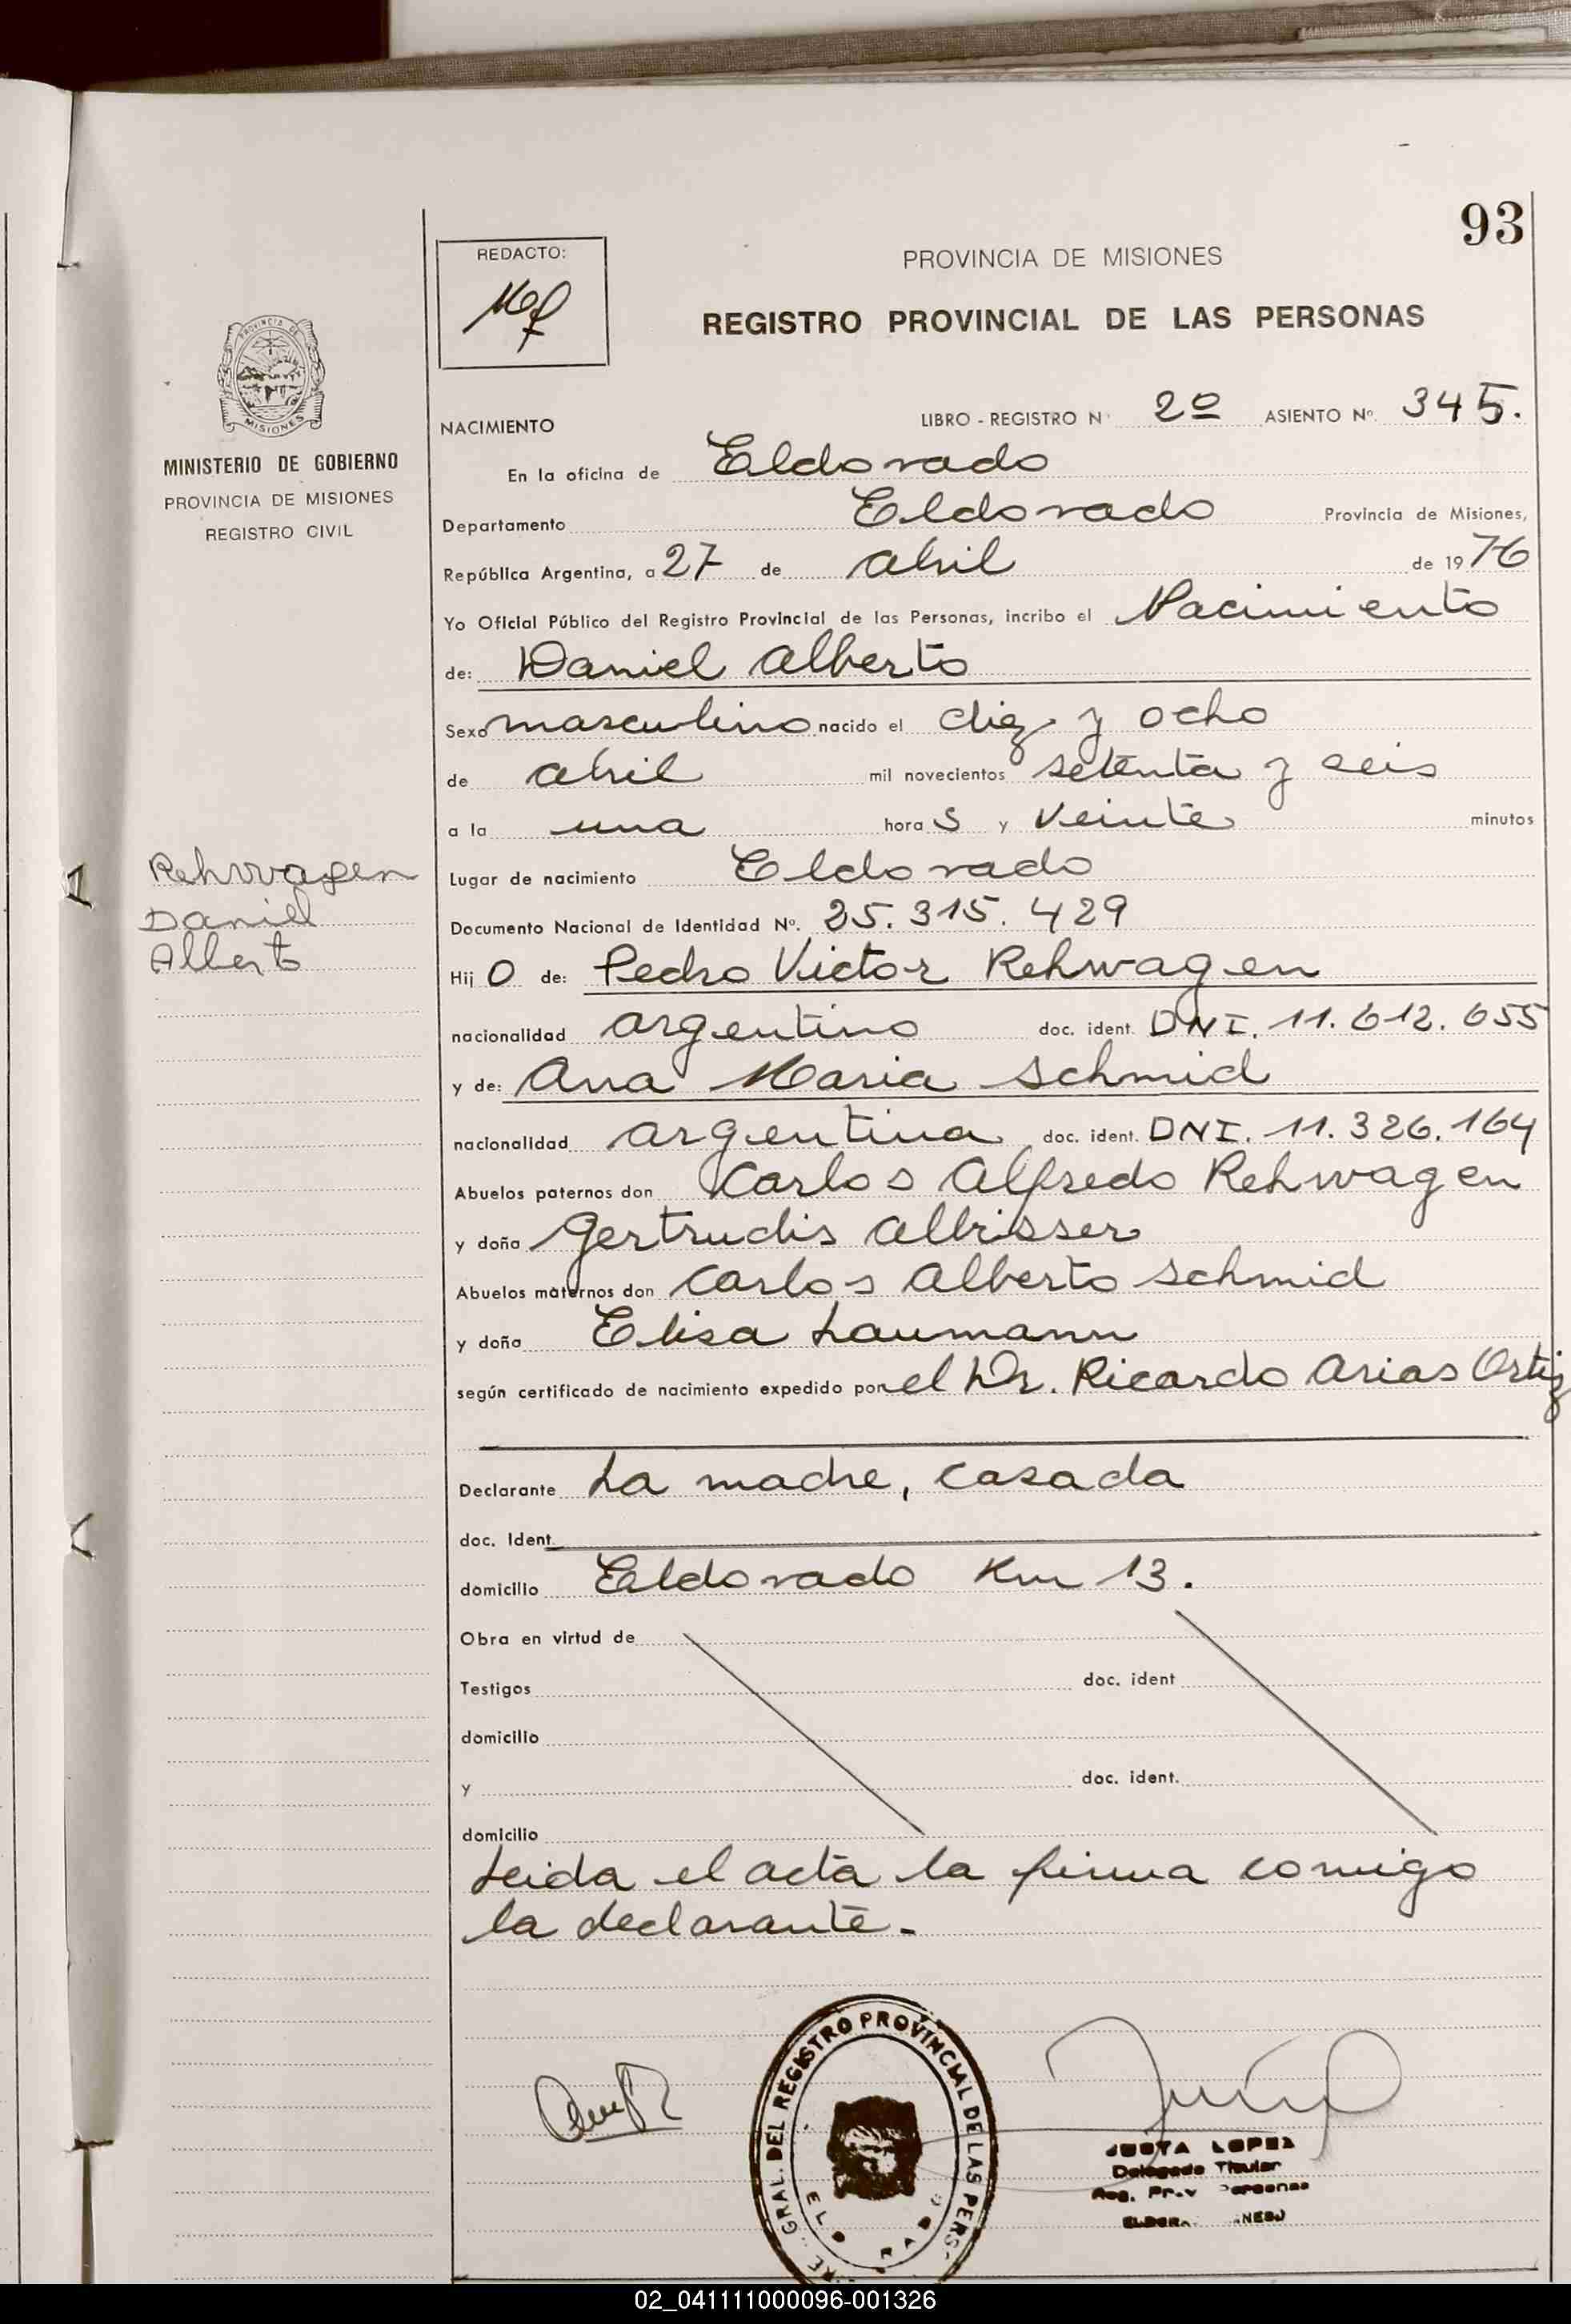 93
REDACTO:
PROVINCIA DE MISIONES
REGISTRO PROVINCIAL DE LAS PERSONAS
PROVINCIA DE
MISIONES
MINISTERIO DE GOBIERNO
PROVINCIA DE MISIONES
REGISTRO CIVIL
NACIMIENTO LIBRO - REGISTRO Nº 2º ASIENTO Nº. 345.
En la oficina de Eldorado
Departamento Eldorado Provincia de Misiones,
República Argentina, a 27 de abril de 1976
Yo Oficial Público del Registro Provincial de las Personas, incribo el Nacimiento
de: Daniel Alberto
Sexo masculino nacido el diez y ocho
de abril mil novecientos setenta y seis
a la una hora s y veinte minutos
Lugar de nacimiento Eldorado
Rehwagen
Daniel
Alberto
Documento Nacional de Identidad Nº. 25.315.429
Hij o de: Pedro Victor Rehwagen
nacionalidad argentino doc. ident. DNI. 11.612.655
y de: Ana Maria Schmid
nacionalidad argentina doc. ident. DNI. 11.326.164
Abuelos paternos don Carlos Alfredo Rehwagen
y doña Gertrudis Albrisser
Abuelos maternos don Carlos Alberto Schmid
y doña Elisa Laumann
según certificado de nacimiento expedido por el Dr. Ricardo Arias Ortiz
Declarante La madre, casada
doc. Ident.
domicilio Eldorado Km 13.
Obra en virtud de
Testigos doc. ident
domicilio
y doc. ident.
domicilio
Leida el acta la firma comigo
la declarante.-
GRAL. DEL REGISTRO PROVINCIAL DE LAS PERS
JUSTA LOPEZ
Delegado Titular
Reg. Prov Personas
02_041111000096-001326